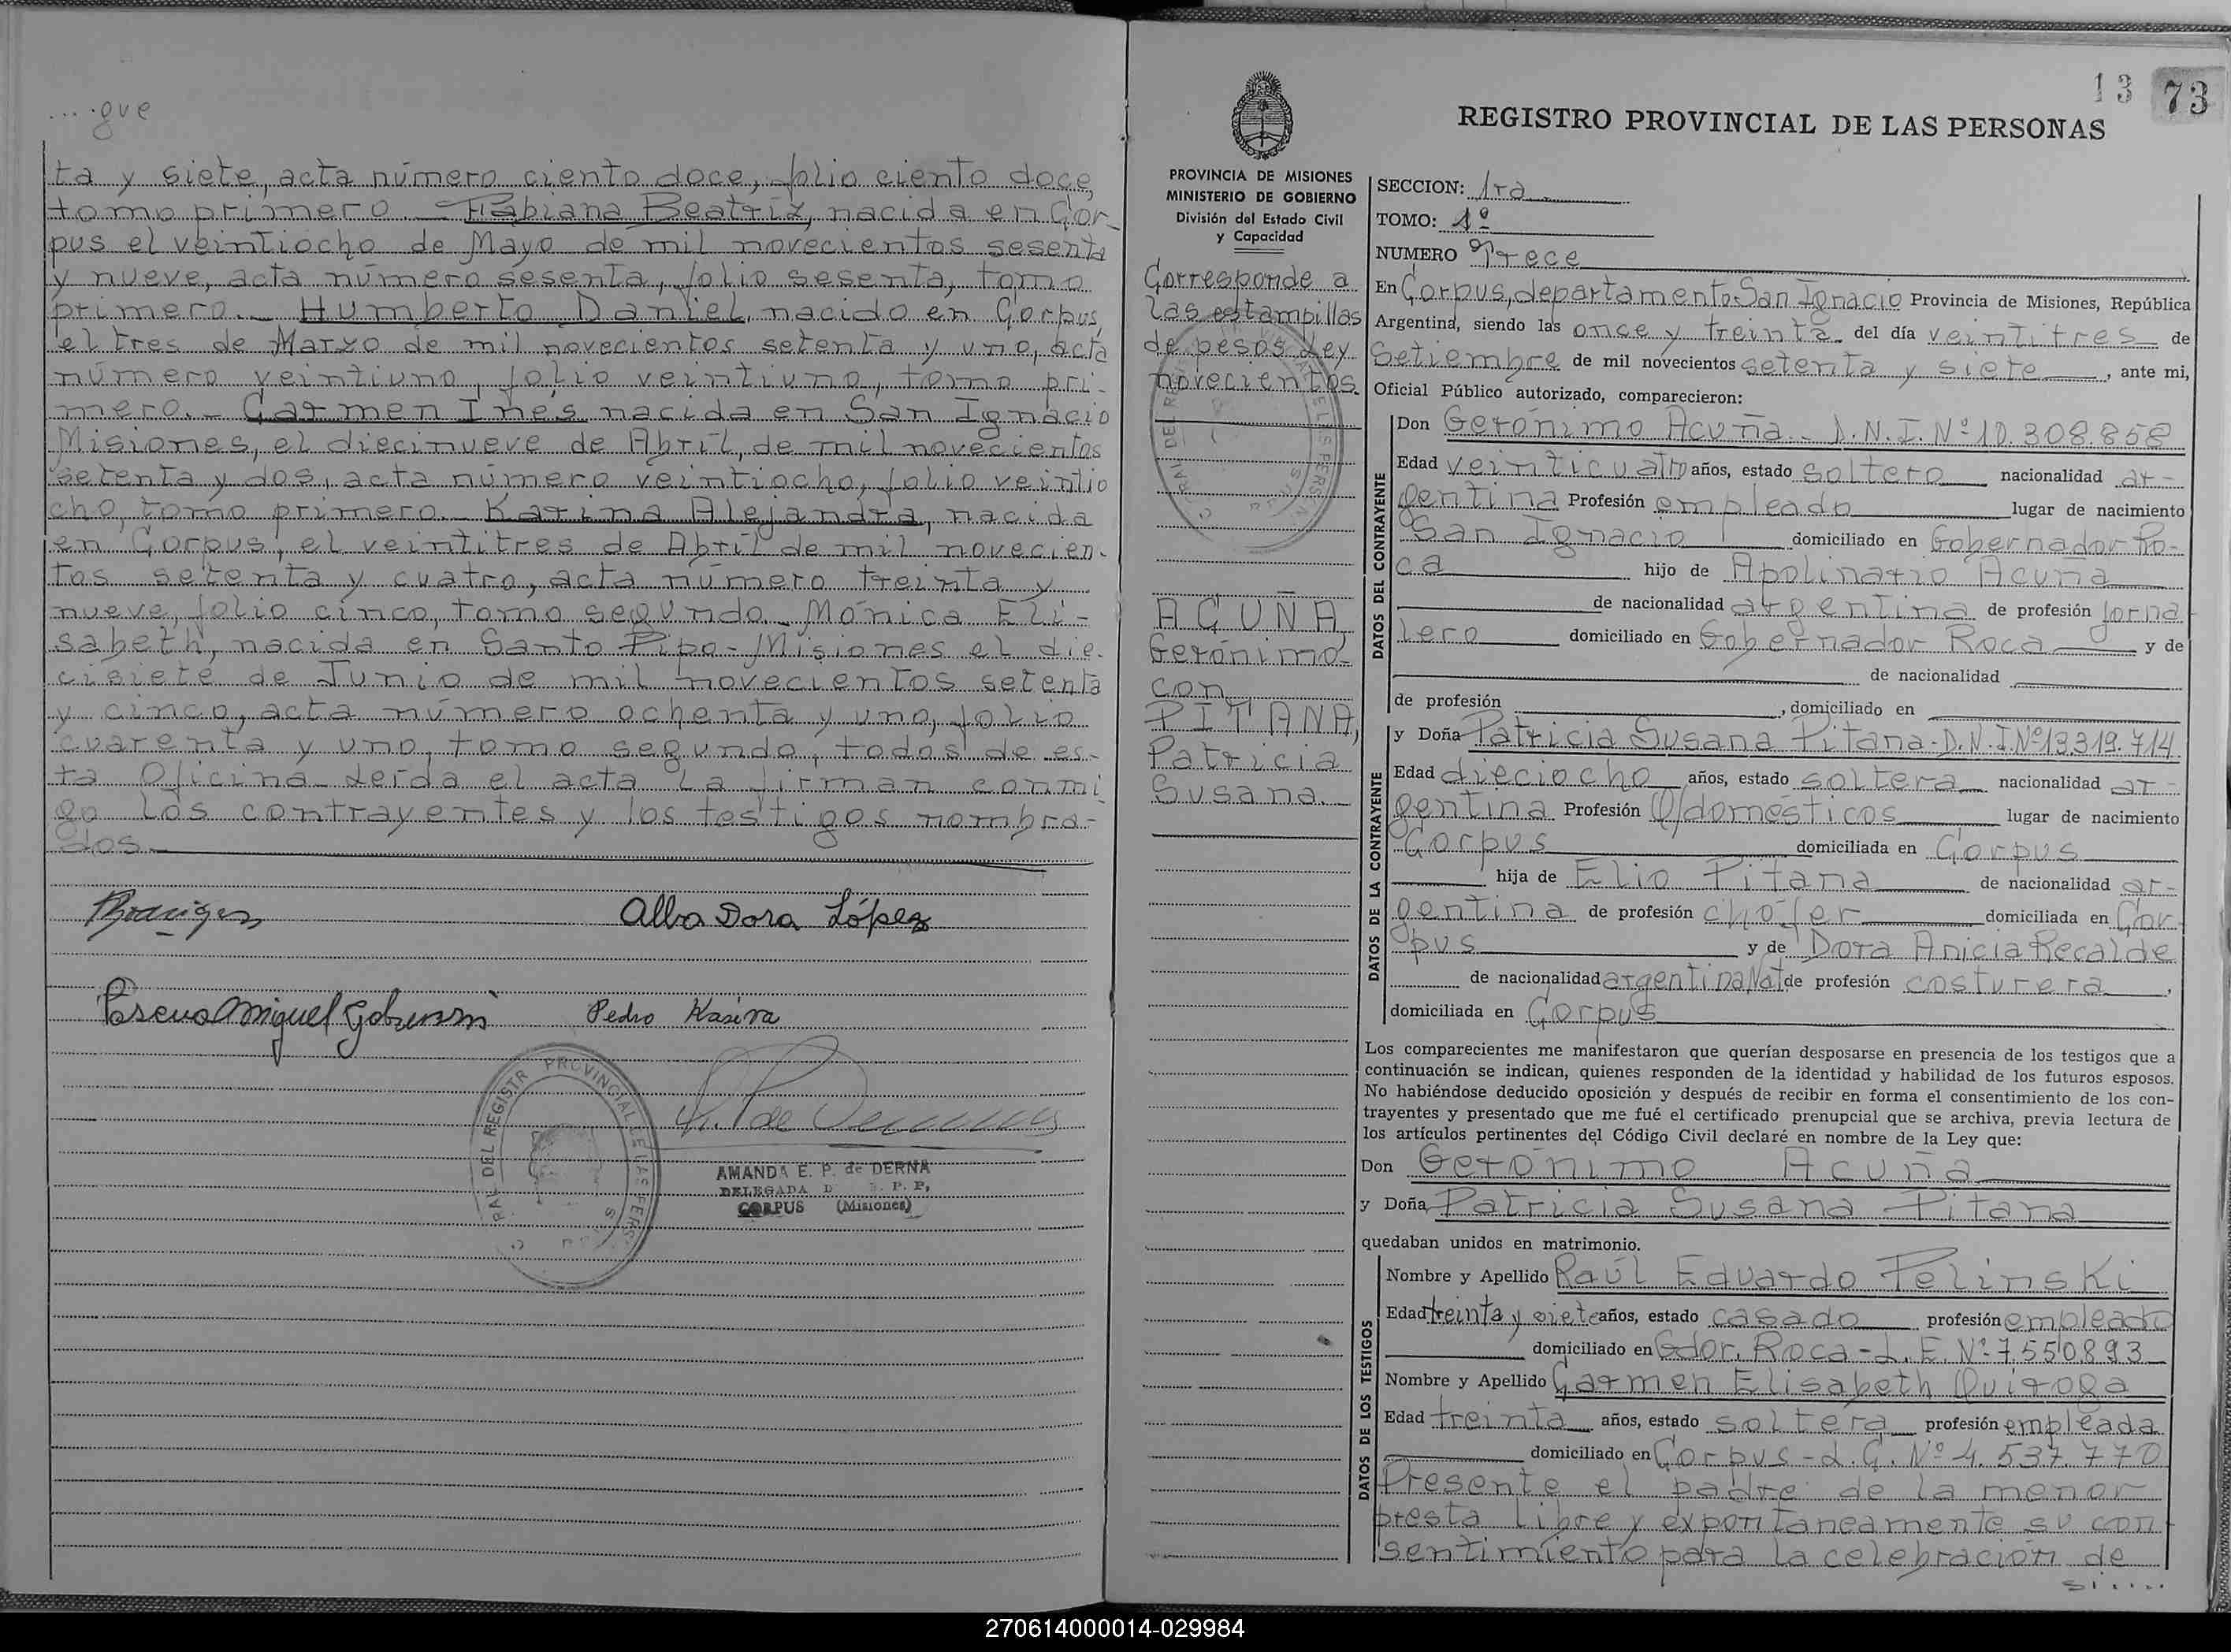 ....gue
ta y siete, acta número ciento doce, folio ciento doce,
tomo primero.- Fabiana Beatriz, nacida en Cor-
pus el veintiocho de Mayo de mil novecientos sesenta
y nueve, acta número sesenta, folio sesenta, tomo
primero.- Humberto Daniel, nacido en Corpus,
el tres de Marzo de mil novecientos setenta y uno, acta
número veintiuno, folio veintiuno, tomo pri-
mero.- Carmen Inés nacida en San Ignacio
Misiones, el diecinueve de Abril, de mil novecientos
setenta y dos, acta número veintiocho, folio veintio
cho, tomo primero. Karina Alejandra, nacida
en Corpus, el veintitres de Abril de mil novecien-
tos setenta y cuatro, acta número treinta y
nueve, folio cinco, tomo segundo.- Mónica Eli-
sabeth, nacida en Santo Pipo-Misiones el die-
cisiete de Junio de mil novecientos setenta
y cinco, acta número ochenta y uno, folio
cuarenta y uno, tomo segundo, todos de es-
ta Oficina. Leída el acta la firman conmi
go los contrayentes y los testigos nombra-
dos.
Alba Dora López
Miguel
Pedro Kasiva
AMANDA E. P. de DERNA
DELEGADA D R. P. P.
CORPUS (Misiones)
13 73
REGISTRO PROVINCIAL DE LAS PERSONAS
PROVINCIA DE MISIONES
MINISTERIO DE GOBIERNO
División del Estado Civil
y Capacidad
Corresponde a
las estampillas
de pesos Ley
novecientos.
ACUÑA,
Gerónimo
con
PITANA,
Patricia
Susana.-
SECCION: 1ra
TOMO: 1º
NUMERO Trece
En Corpus, departamento San Ignacio Provincia de Misiones, República
Argentina, siendo las once y treinta del día veintitres de
Setiembre de mil novecientos setenta y siete, ante mi,
Oficial Público autorizado, comparecieron:
DATOS DEL CONTRAYENTE
Don Gerónimo Acuña.- D.N.I. Nº 10.308.858
Edad veinticuatro años, estado soltero nacionalidad ar-
gentina Profesión empleado lugar de nacimiento
San Ignacio domiciliado en Gobernador Ro-
ca hijo de Apolinario Acuña
de nacionalidad argentina de profesión jorna
lero domiciliado en Gobernador Roca y de
de nacionalidad
de profesión , domiciliado en
DATOS DE LA CONTRAYENTE
y Doña Patricia Susana Pitana-D.N.I.Nº13.319.714
Edad dieciocho años, estado soltera nacionalidad ar-
gentina Profesión Q/domésticos lugar de nacimiento
Corpus domiciliada en Corpus
hija de Elio Pitana de nacionalidad ar-
gentina de profesión chofer domiciliada en Cor
pus y de Dora Anicia Recalde
de nacionalidad argentina Nat de profesión costurera,
domiciliada en Corpus
Los comparecientes me manifestaron que querían desposarse en presencia de los testigos que a
continuación se indican, quienes responden de la identidad y habilidad de los futuros esposos.
No habiéndose deducido oposición y después de recibir en forma el consentimiento de los con-
trayentes y presentado que me fué el certificado prenupcial que se archiva, previa lectura de
los artículos pertinentes del Código Civil declaré en nombre de la Ley que:
Don Gerónimo Acuña
y Doña Patricia Susana Pitana
quedaban unidos en matrimonio.
DATOS DE LOS TESTIGOS
Nombre y Apellido Raúl Eduardo Pelinski
Edad treinta y siete años, estado casado profesión empleado
domiciliado en Gdor. Roca-L.E. Nº 7.550.893
Nombre y Apellido Carmen Elisabeth Quiroga
Edad treinta años, estado soltera profesión empleada
domiciliado en Corpus-L.C. Nº 4.537.770
Presente el padre de la menor
presta libre y expontaneamente su con
sentimiento para la celebración de
si.....
270614000014-029984